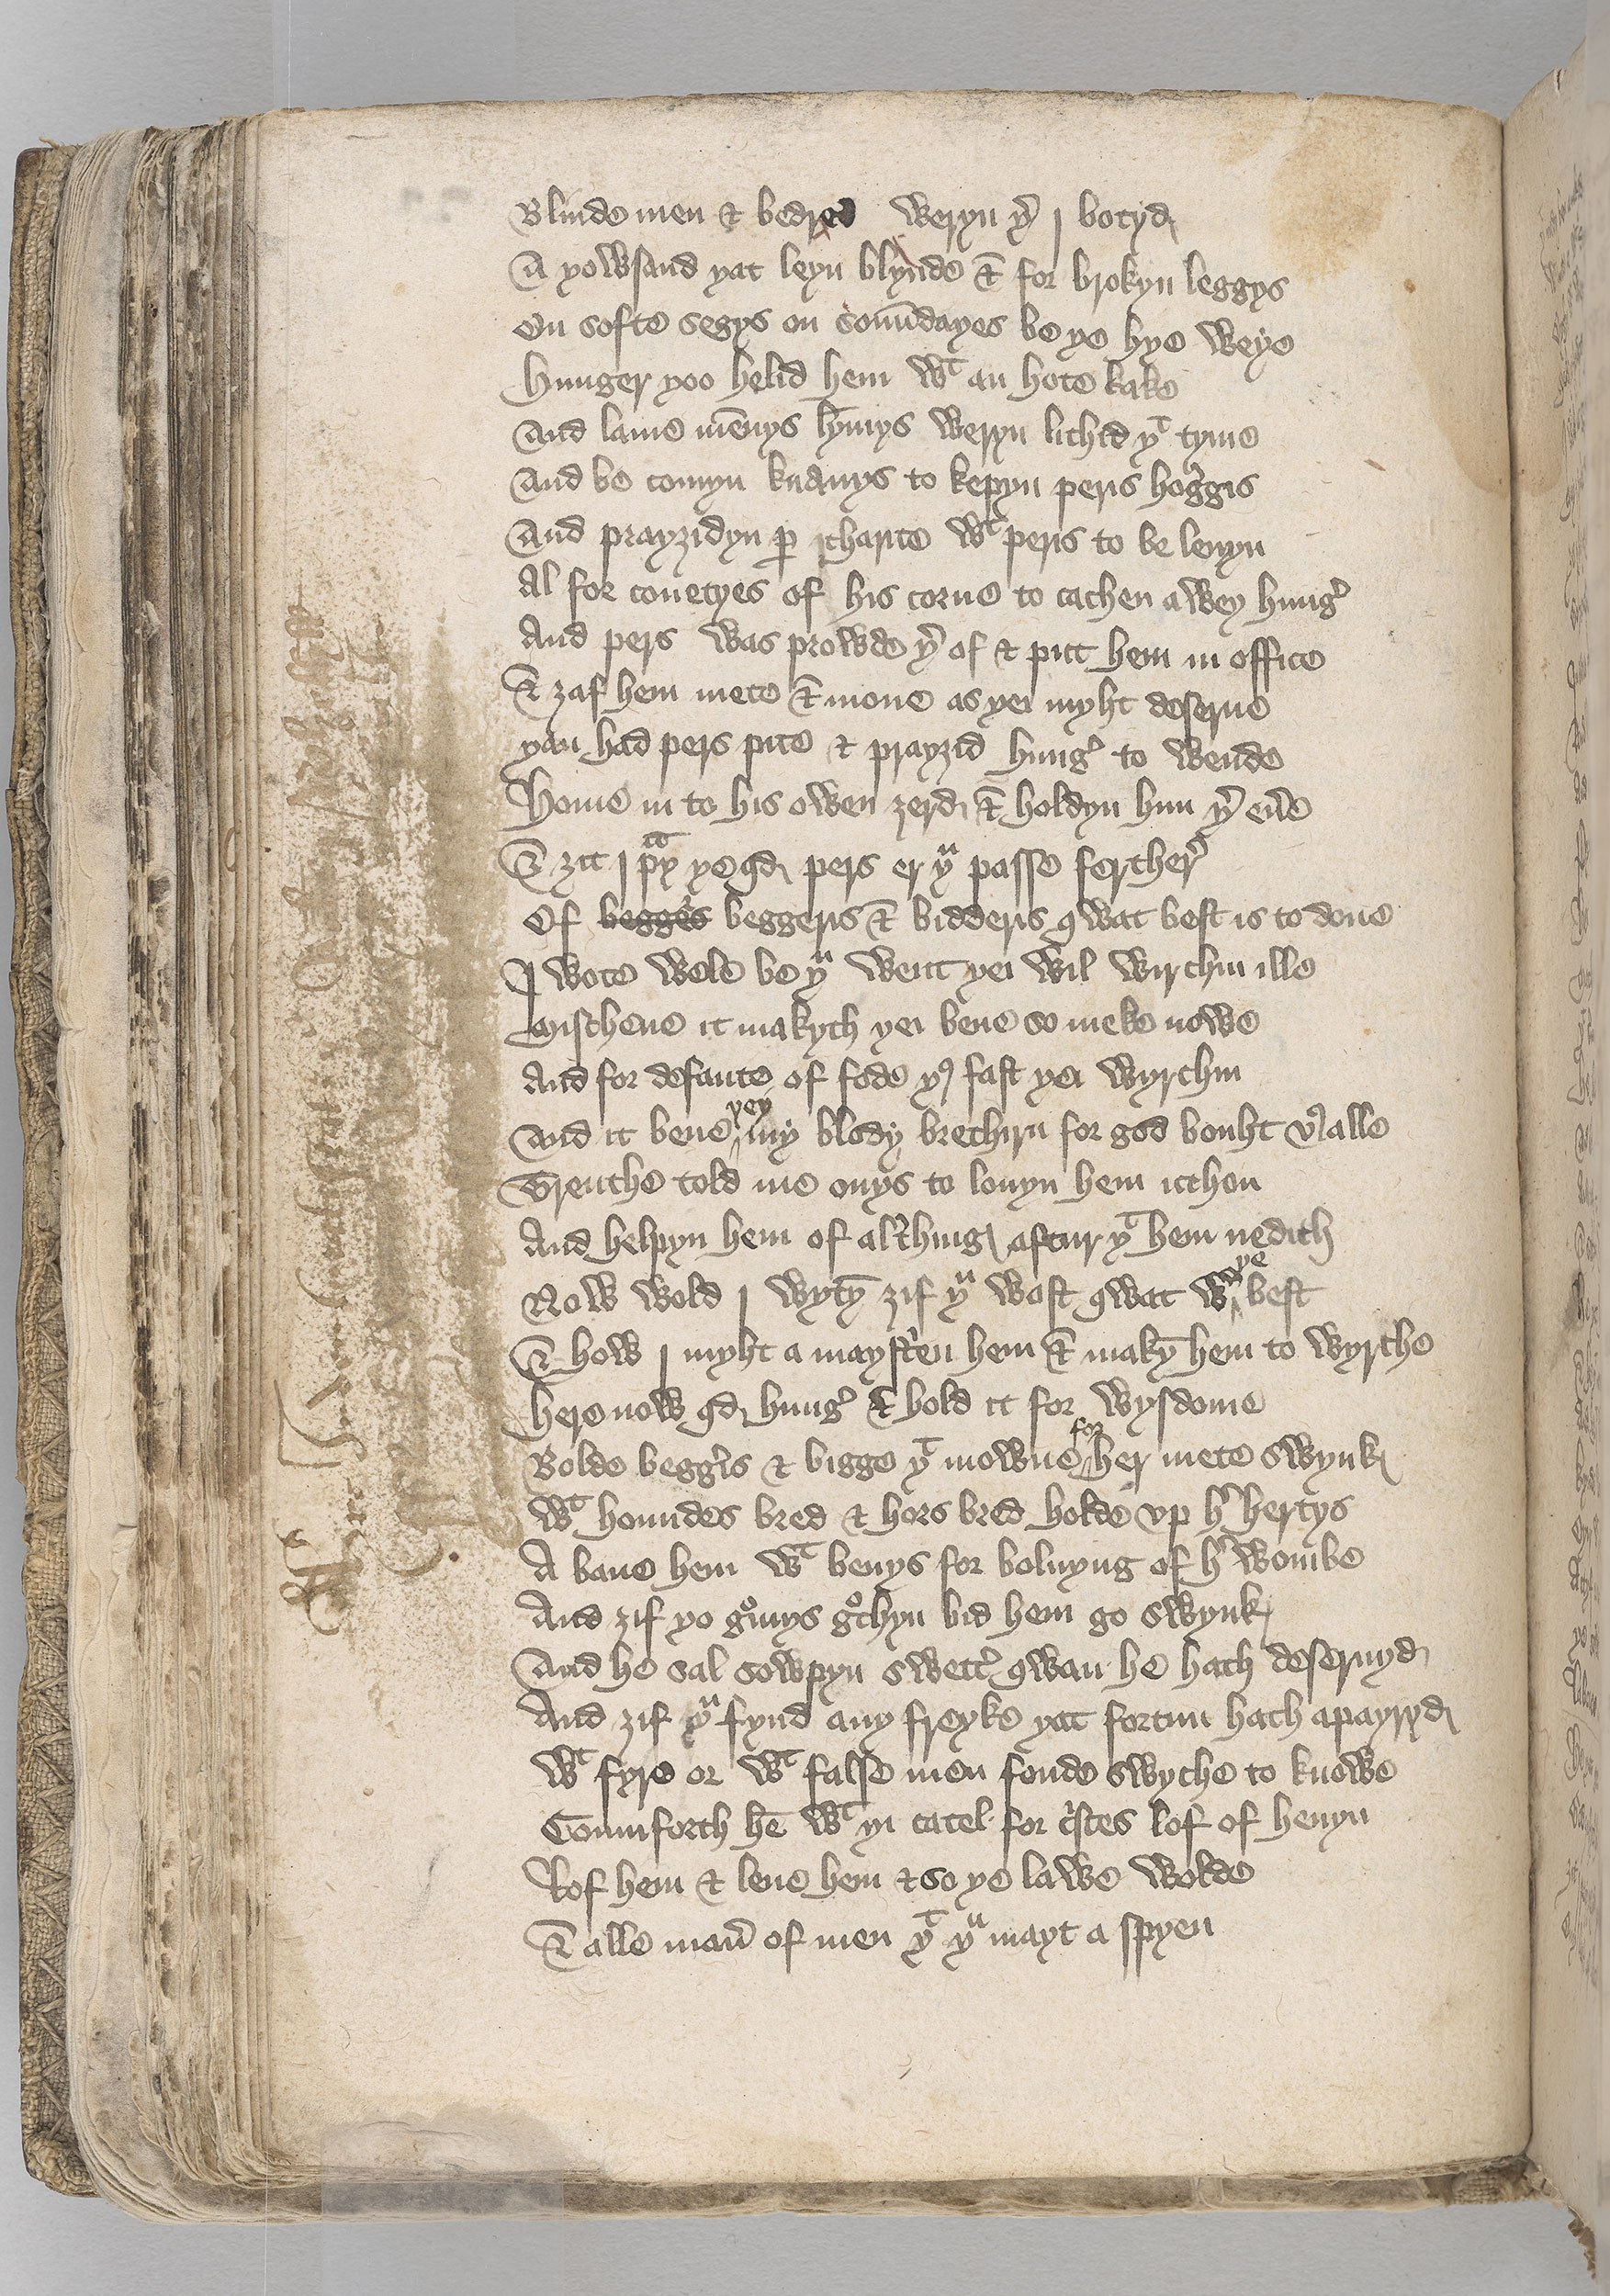 Blinde men & bedred weryn yͬ I botyd
A yowsand yat leyn blynde & for brokyn leggys
On softe segys on sonūdayes be ye hye weye
Hunger yoo helid hem wᵗ an hote kake
And lame mēnys lȳmys weryn lithid yᵗ tyme
And be comyn knauys to kepyn peris hoggis
And prayzidyn ꝑ charite wᵗ peris to be lenyn
Al for couetyes of his corne to cachen a wey hungʼ
And pers was prowde yͬ of & putt hem in office
& zaf hem mete & mone as yei myht deserue
yan had pers pite & prayzid hungʼ to wende
Home in to his owen zerd & holdyn him yͬ eūe
& zit I pᵃy ye qd pers er yᵘ passe fertherʼ
Of beggeʼs beggeris & bidderis qwat best is to done
I wote wele be yᵘ went yei wil wirchin ille
Mischeue it makyth yei bene so meke nowe
And for defaute of fode yꝰ fast yei wyrchin
And it bene yey my blody brethirn for god bouht vꝰ alle
Treuthe told me onys to louyn hem itchon
And helpyn hem of al thing aftur yᵗ hem nedith
Now wold I wytȳ zif yᵘ wost qwat wᵉ ye best
& how I myht a maystʼen hem & makȳ hem to wyrche
Here now qd hungʼ & hold it for wysdome
Bolde beggʼis & bigge yᵗ mowne for her mete swynk
Wᵗ houndes bred & hors bred holde vp hʼ hertys
A bane hem wᵗ benys for bolnyng of hʼ wombe
And zif ye gᵒmys gᵒchyn bid hem go swynk
And he sal sowpyn swettʼ qwan he hath deseruyd
And zif yᵘ fynd any freyke yat fortun hath apayryd
Wᵗ fyre or wᵗ false men fonde swyche to knowe
Counforth hē wᵗ yi catel for cʼstes lof of heuyn
Lof hem & lene hem & so ye lawe wolde
& alle manʼ of men yᵗ yᵘ mayt a spyen